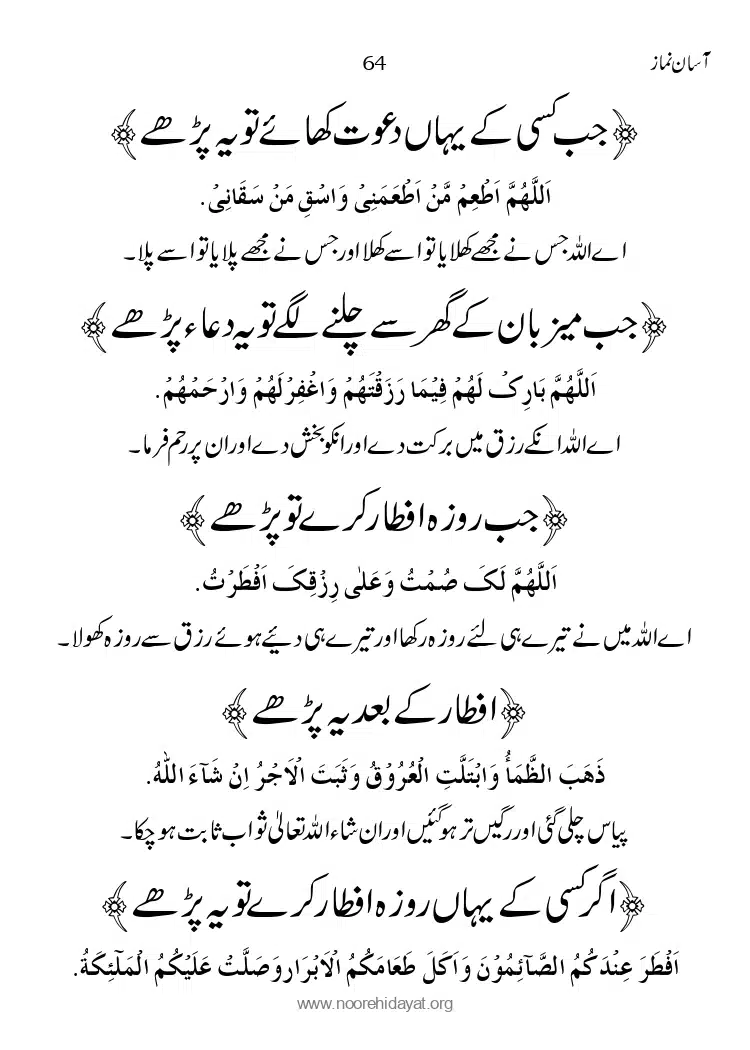 آسان نماز 64
﴿جب کسی کے یہاں دعوت کھائے تو یہ پڑھے﴾
اَللّٰهُمَّ اَطْعِمْ مَّنْ اَطْعَمَنِیْ وَاسْقِ مَنْ سَقَانِیْ.
اے اللہ جس نے مجھے کھلایا تو اسے کھلا اور جس نے مجھے پلایا تو اسے پلا۔
﴿جب میزبان کے گھر سے چلنے لگے تو یہ دعاء پڑھے﴾
اَللّٰهُمَّ بَارِکْ لَهُمْ فِیْمَا رَزَقْتَهُمْ وَاغْفِرْلَهُمْ وَارْحَمْهُمْ.
اے اللہ انکے رزق میں برکت دے اور انکو بخش دے اور ان پر رحم فرما۔
﴿جب روزہ افطار کرے تو پڑھے﴾
اَللّٰهُمَّ لَکَ صُمْتُ وَعَلٰی رِزْقِکَ اَفْطَرْتُ.
اے اللہ میں نے تیرے ہی لئے روزہ رکھا اور تیرے ہی دئیے ہوئے رزق سے روزہ کھولا۔
﴿افطار کے بعد یہ پڑھے﴾
ذَهَبَ الظَّمَأُ وَابْتَلَّتِ الْعُرُوْقُ وَثَبَتَ الْاَجْرُ اِنْ شَآءَ اللّٰهُ.
پیاس چلی گئی اور رگیں تر ہوگئیں اور ان شاء اللہ تعالیٰ ثواب ثابت ہو چکا۔
﴿اگر کسی کے یہاں روزہ افطار کرے تو یہ پڑھے﴾
اَفْطَرَ عِنْدَکُمُ الصَّآئِمُوْنَ وَاَکَلَ طَعَامَکُمُ الْاَبْرَارِوَصَلَّتْ عَلَیْکُمُ الْمَلٰٓئِکَةُ.
www.noorehidayat.org